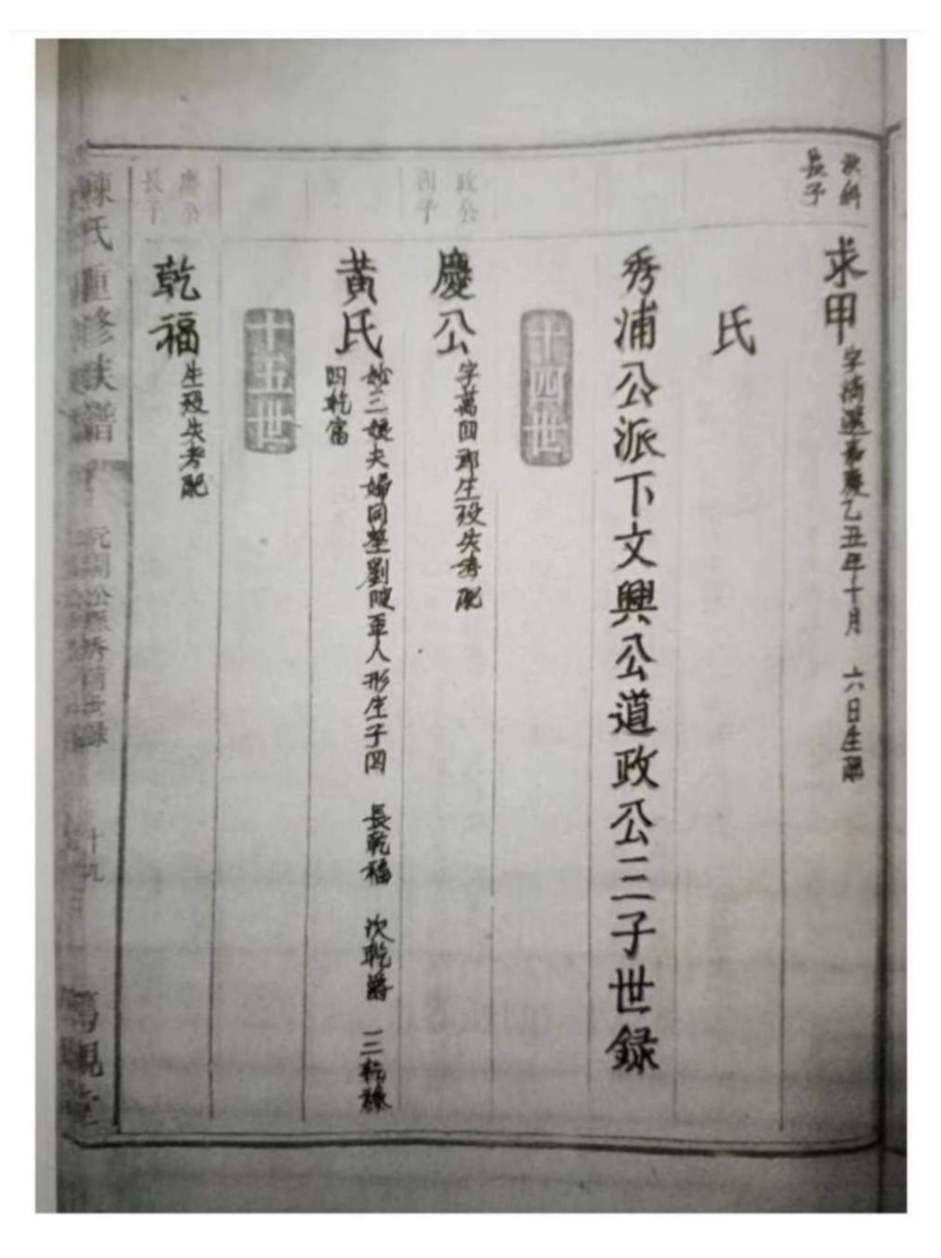 長子
求甲 字 選嘉慶乙丑年十月 六日生配
氏
秀浦公派下文興公道政公三子世録
十四世
政公
子
慶公 字萬四郎生殁失考配
黃氏 妙三娘夫婦同塟劉陂 人形生子四 長乾福 次乾爵 三乾祿
四乾富
十五世
慶公
長子
乾福 生殁失考配
陳氏重修族譜
世録
十九
篤親堂